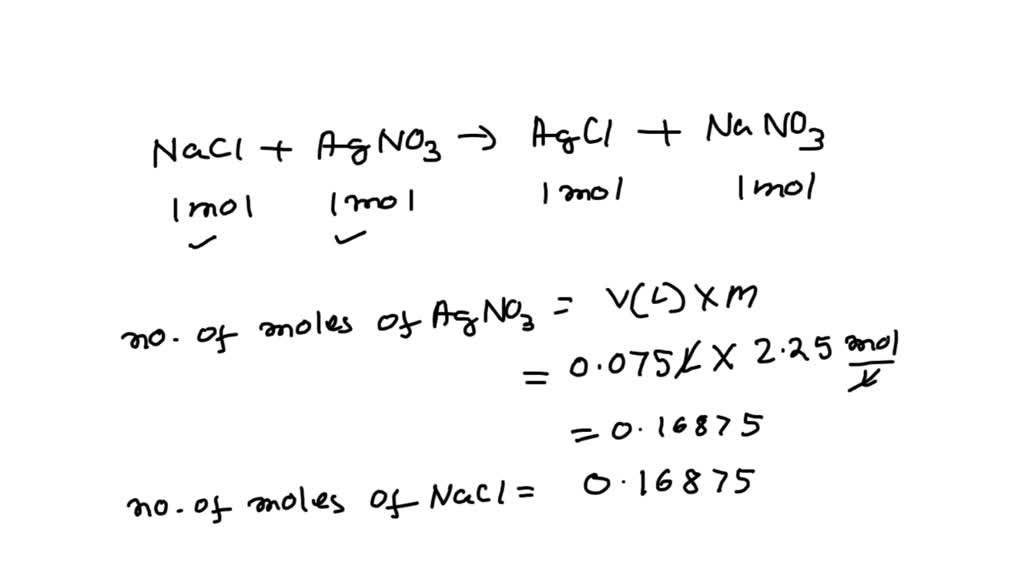 NaCl + AgNO₃ → AgCl + NaNO₃
1mol 1mol 1mol 1mol
no. of moles of AgNO₃ = V(L) X M
= 0.075L X 2.25 mol/L
= 0.16875
no. of moles of NaCl = 0.16875